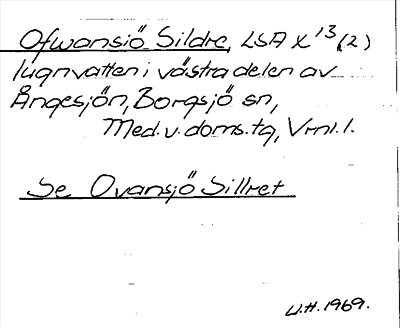 Ofwansiö Sildre, LSA X 13 (2)
lugnvatten i västra delen av
Ångesjön, Borgsjö sn,
Med. v. doms. tg, Vrnl. l.
Se Ovansjö Sillret
U.H. 1969.